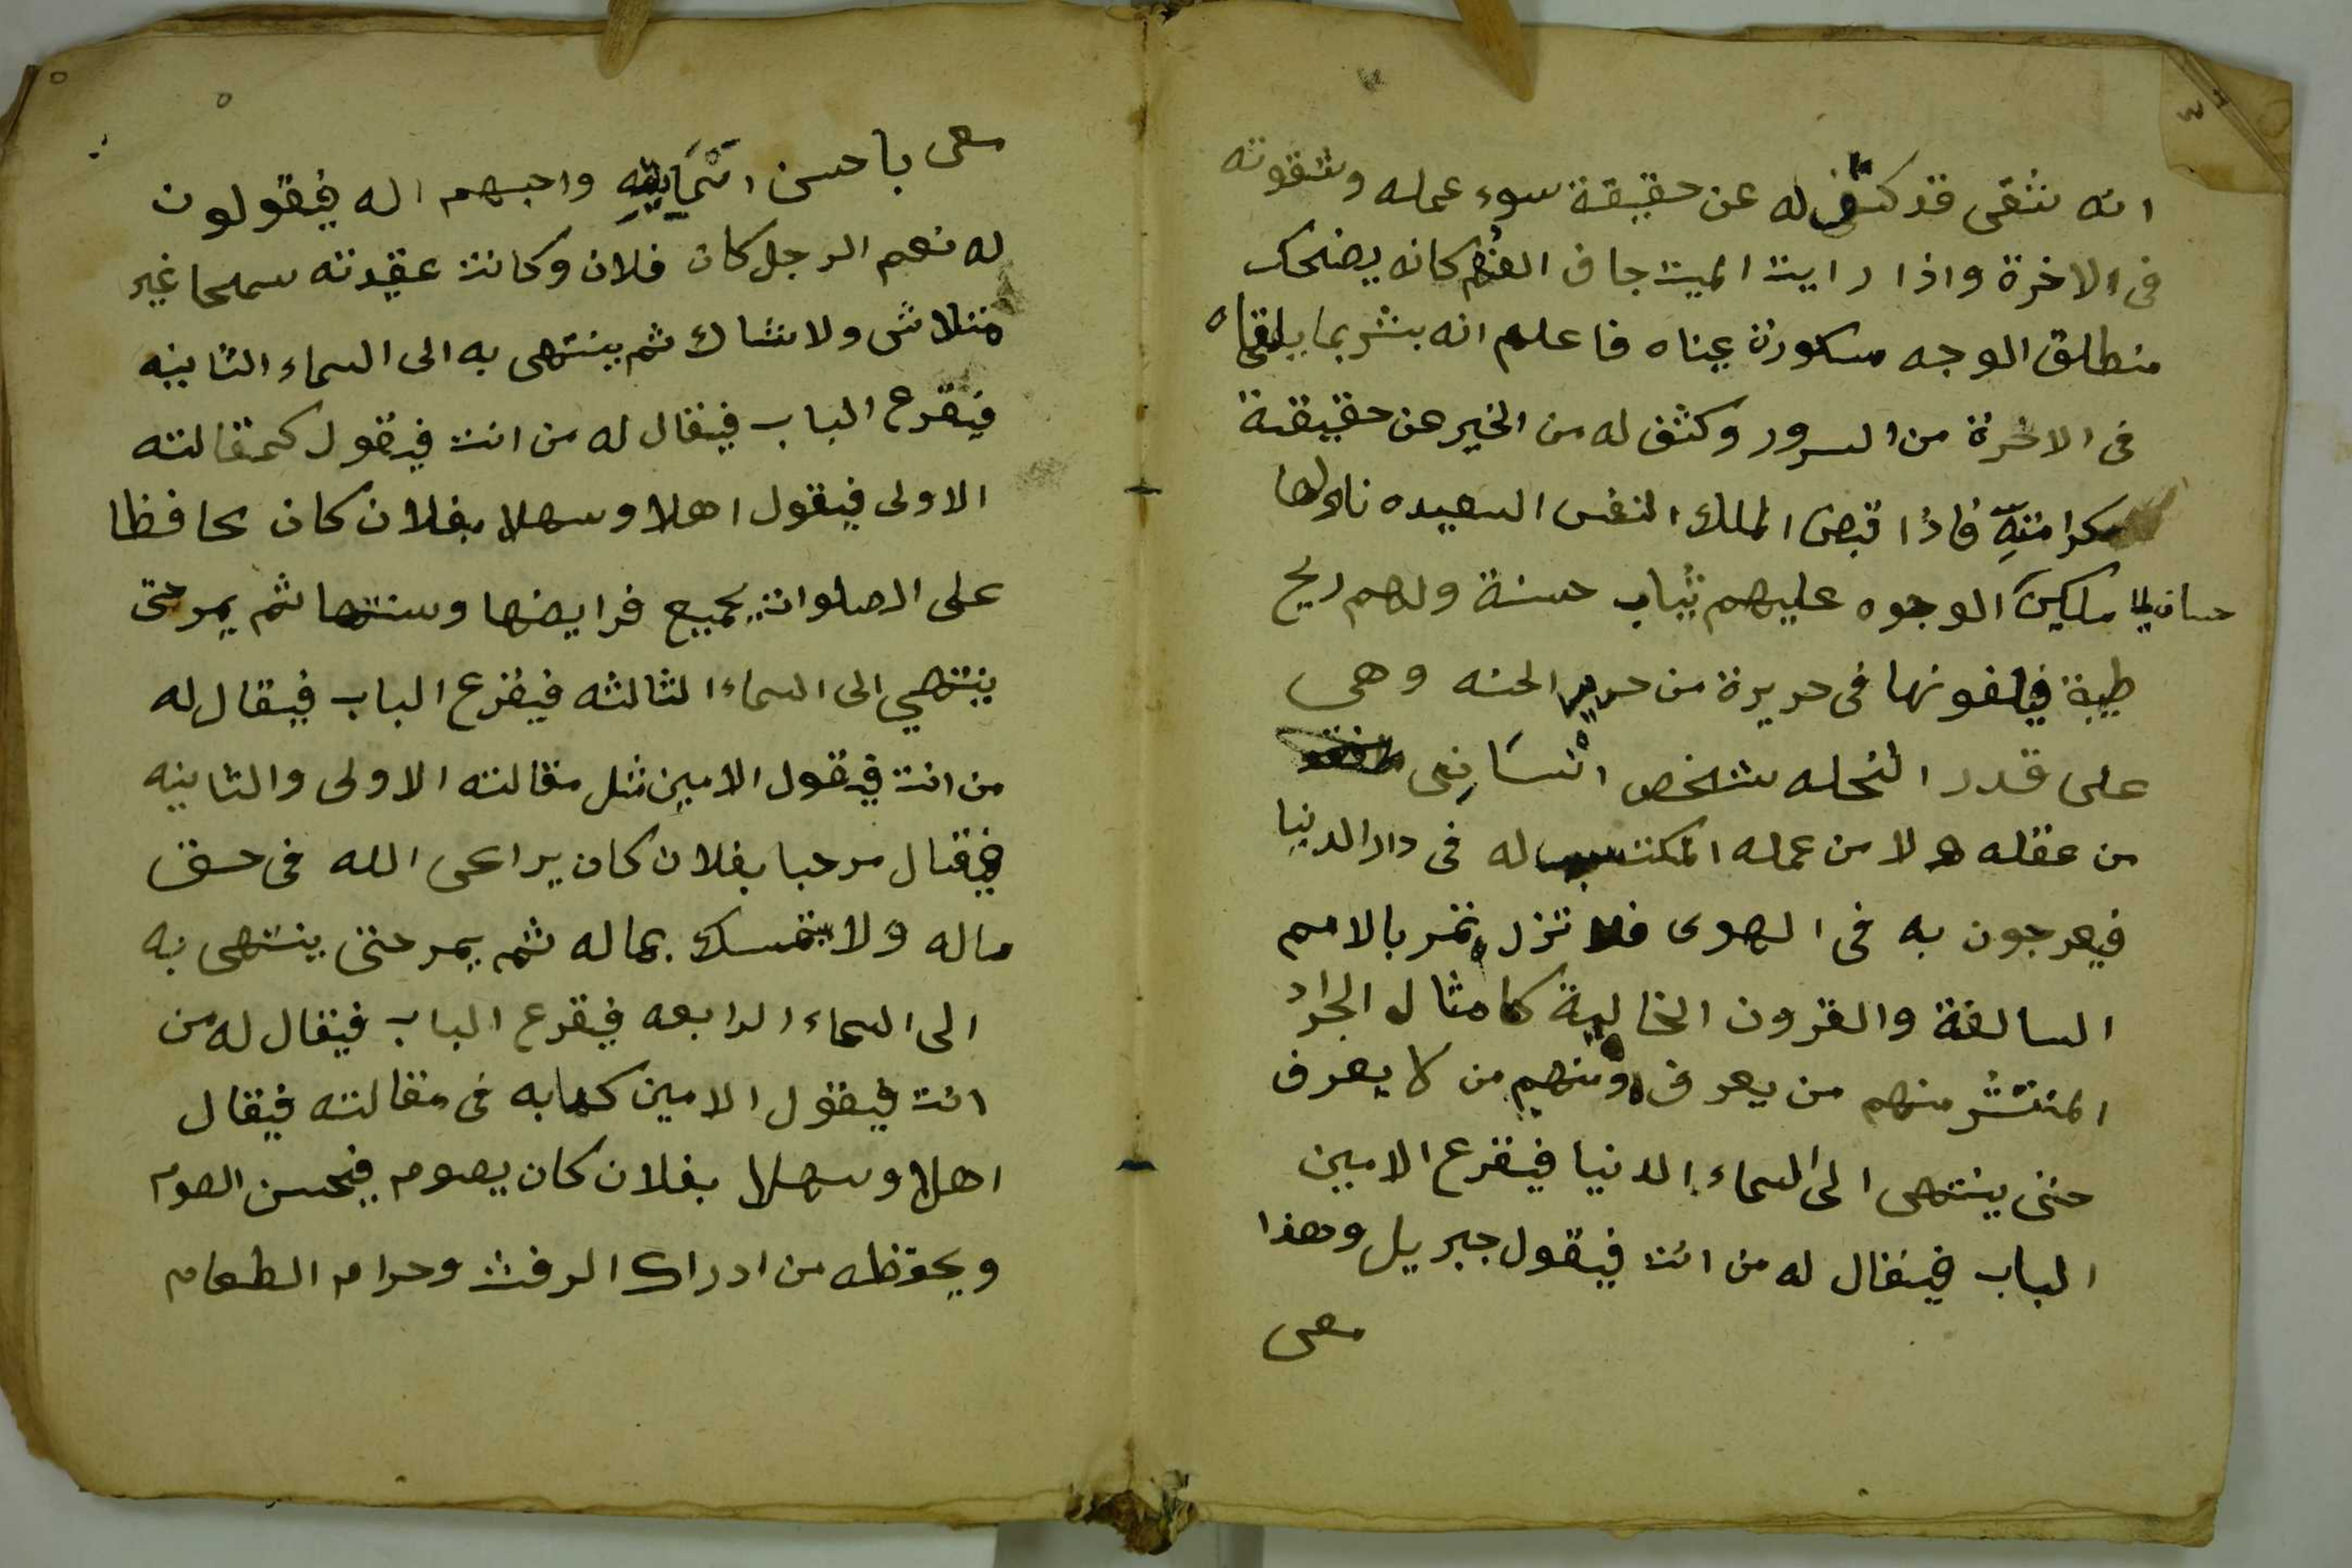 انه شقى قد كشف له عن حقيقة سوء عمله وشقوته
فى الاخرة واذا رايت الميت جاف الفم كانه يضحك
منطلق الوجه مكسورة عيناه فاعلم انه بشر بما يلقاه
فى الاخرة من السرور وكشف له من الخير عن حقيقة
كرامته فاذا قبض الملك النفس السعيده ناولها
ملكين حسان الوجوه عليهم ثياب حسنة ولهم ريح
طيبة فيلفونها فى حريرة من حرير الجنه وهى
على قدر النحله شخص انسانى
من عقله ولا من عمله المكتسب له فى دار الدنيا
فيعرجون به فى الهوى فلا تزل تمر بالامم
السالفة والقرون الخالية كامثال الجراد
المنتشر منهم من يعرف ومنهم من لا يعرف
حتى ينتهى الى السماء الدنيا فيقرع الامين
الباب فيقال له من انت فيقول جبريل وهذا
معى
معى باحسن اسمايه واحبهم اله فيقولون
له نعم الرجل كان فلان وكانت عقيدته سمحا غير
متلاش ولا شاك ثم ينتهى به الى السماء الثانيه
فيقرع الباب فيقال له من انت فيقول كمقالته
الاولى فيقول اهلا وسهلا بفلان كان محافظا
على الصلوات بجميع فرايضها وسنتها ثم يمر حتى
ينتهي الى السماء الثالثه فيقرع الباب فيقال له
من انت فيقول الامين مثل مقالته الاولى والثانيه
فيقال مرحبا بفلان كان يراعى الله فى حق
ماله ولا يتمسك بماله ثم يمر حتى ينتهى به
الى السماء الرابعه فيقرع الباب فيقال له من
انت فيقول الامين كدابه فى مقالته فيقال
اهلا وسهلا بفلان كان يصوم فيحسن الصوم
ويحفظه من ادراك الرفث وحرام الطعام